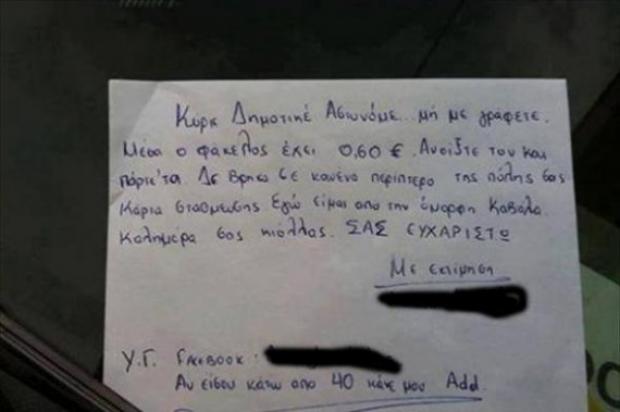 Κύριε Δημοτικέ Αστυνόμε... μή με γράφετε.
Μέσα ο φάκελος έχει 0,60 €. Ανοίξτε τον και
πάρτε'τα. Δε βρήκα σε κανένα περίπτερο της πόλης σας
κάρτα στάθμευσης Εγώ είμαι από την όμορφη Καβάλα.
Καλημέρα σας κιόλλας. ΣΑΣ ΕΥΧΑΡΙΣΤΩ
Με εκτίμηση
Υ.Γ. FACEBOOK:
Αν είσαι κάτω από 40 κάνε μου Add.